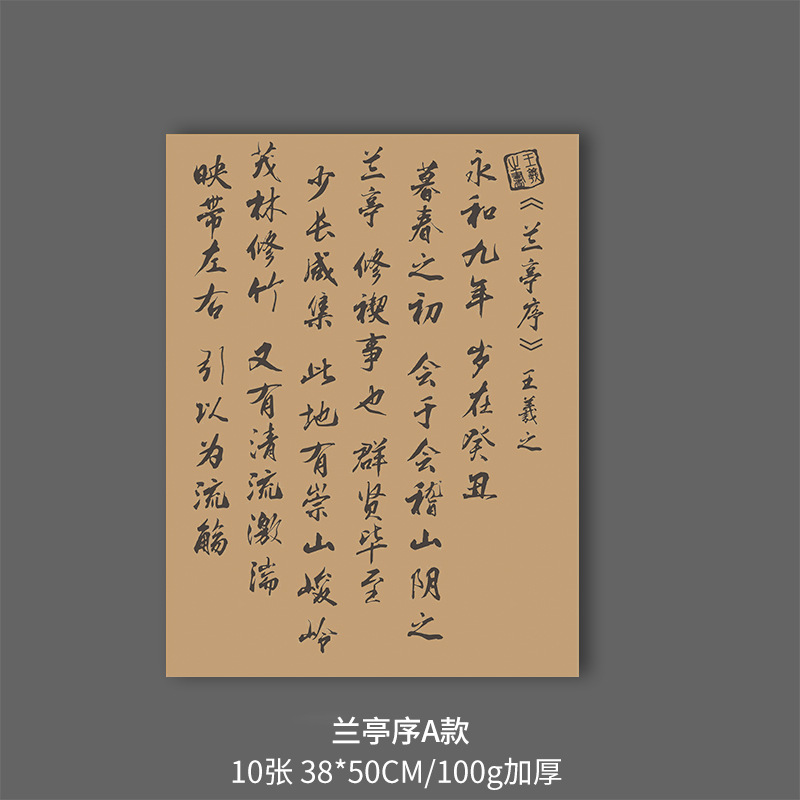 《兰亭序》王羲之
永和九年 岁在癸丑
暮春之初 会于会稽山阴之
兰亭 修禊事也 群贤毕至
少长咸集 此地有崇山峻岭
茂林修竹 又有清流激湍
映带左右 引以为流觞
兰亭序A款
10张 38*50CM/100g加厚